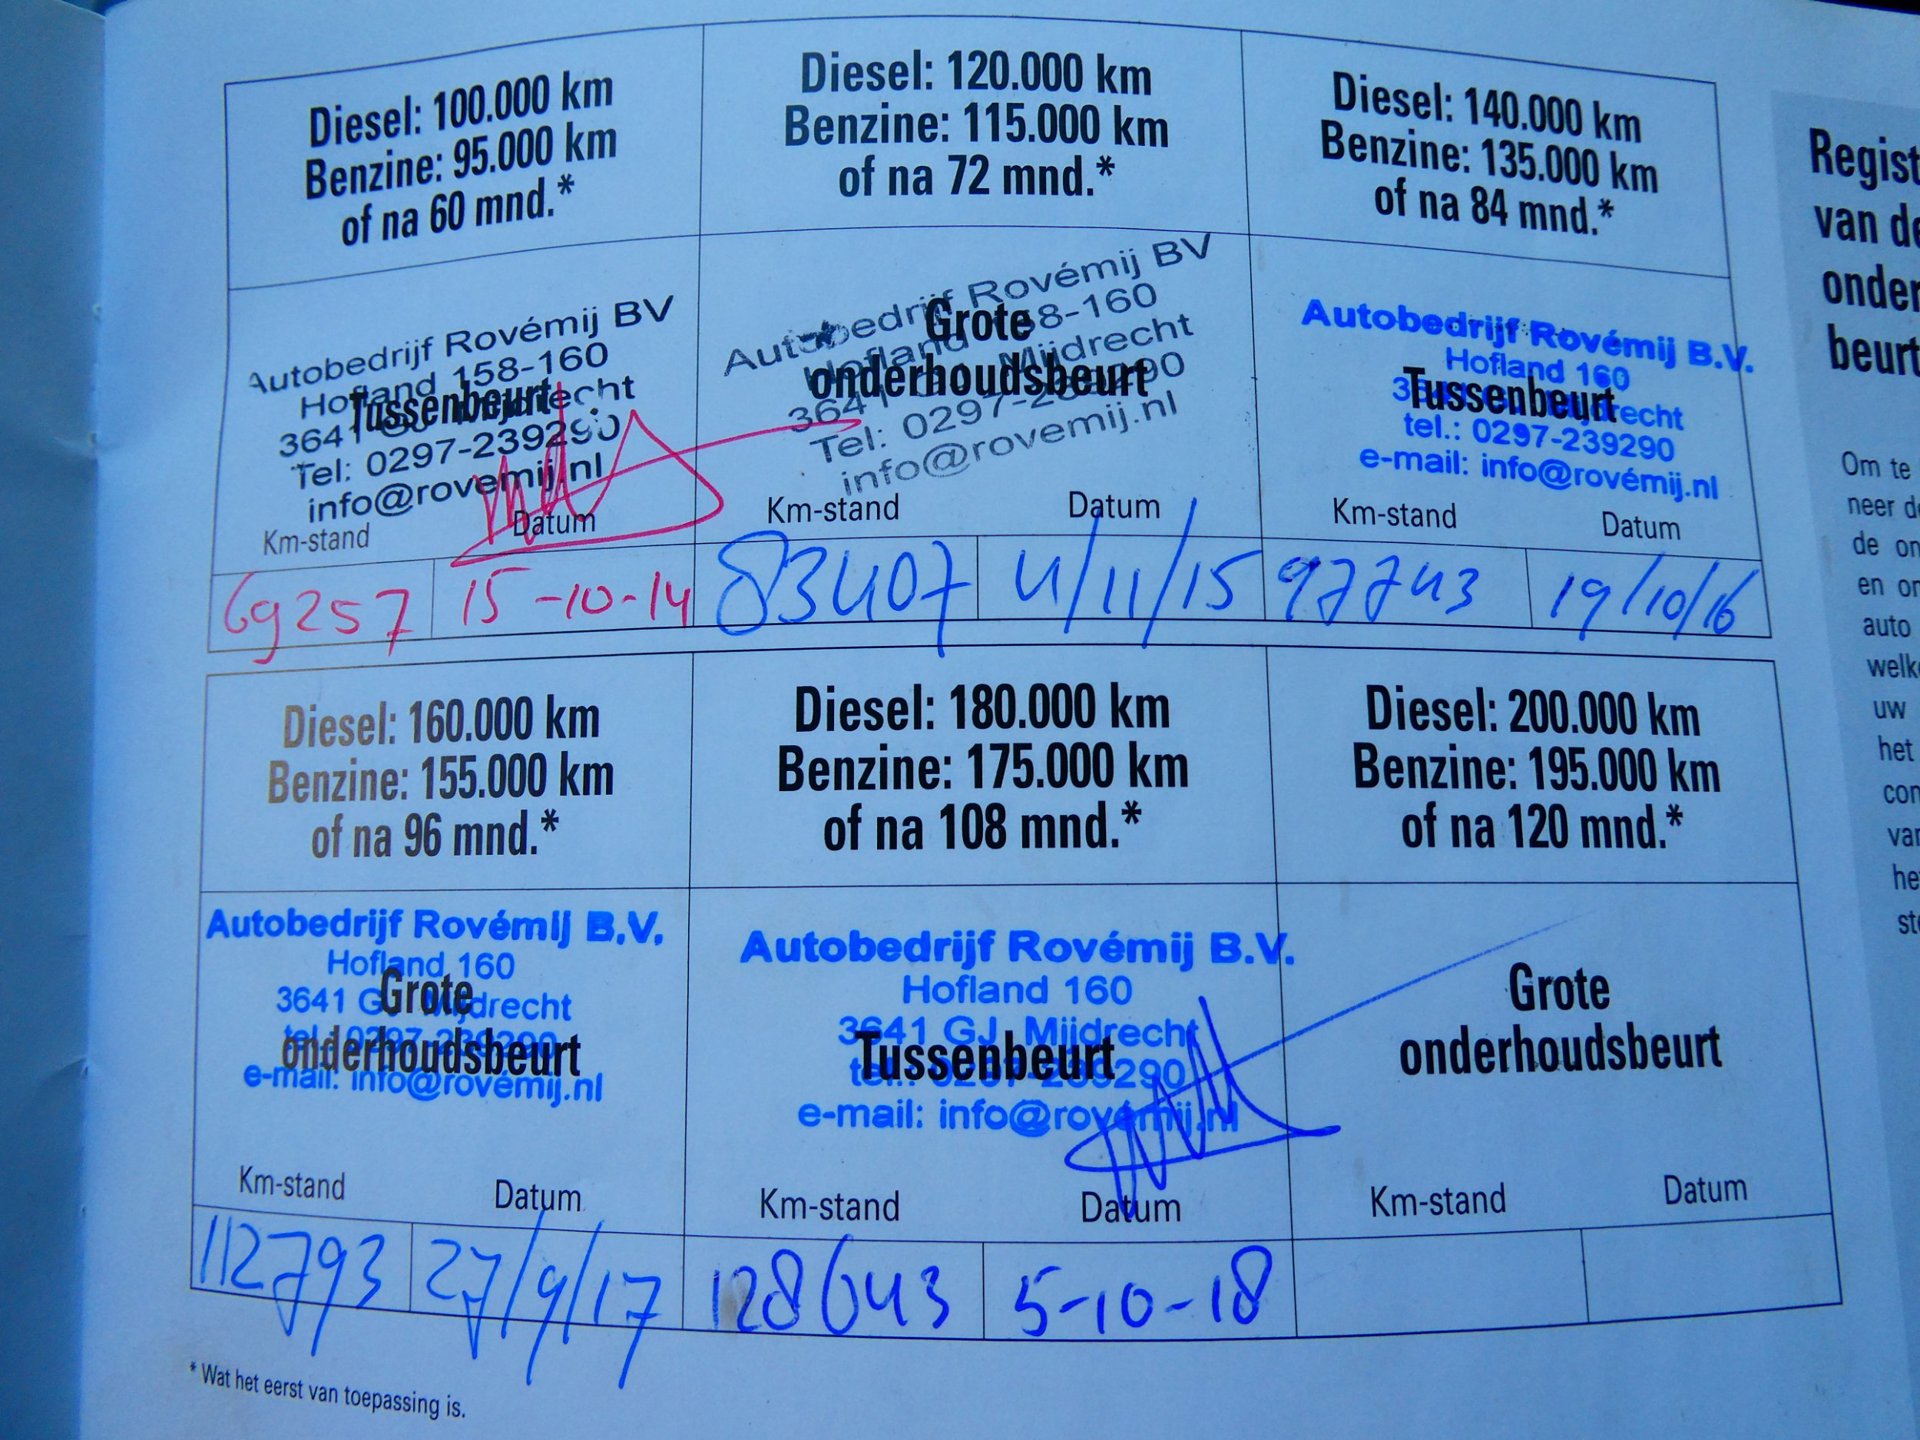 Diesel: 100.000 km
Benzine: 95.000 km
of na 60 mnd.*
Autobedrijf Rovémij BV
Hofland 158-160
Tussenbeurt
3641 GJ Mijdrecht
Tel: 0297-239290
info@rovemij.nl
Km-stand Datum
69257 15-10-14
Diesel: 120.000 km
Benzine: 115.000 km
of na 72 mnd.*
Autobedrijf Rovémij BV
Hofland 158-160
Grote
onderhoudsbeurt
3641 GJ Mijdrecht
Tel: 0297-239290
info@rovemij.nl
Km-stand Datum
83407 4/11/15
Diesel: 140.000 km
Benzine: 135.000 km
of na 84 mnd.*
Autobedrijf Rovémij B.V.
Hofland 160
3641 GJ Mijdrecht
Tussenbeurt
tel.: 0297-239290
e-mail: info@rovémij.nl
Km-stand Datum
97743 19/10/16
Diesel: 160.000 km
Benzine: 155.000 km
of na 96 mnd.*
Autobedrijf Rovémij B.V.
Hofland 160
Grote
3641 GJ Mijdrecht
tel.: 0297-239290
onderhoudsbeurt
e-mail: info@rovémij.nl
Km-stand Datum
112793 27/9/17
Diesel: 180.000 km
Benzine: 175.000 km
of na 108 mnd.*
Autobedrijf Rovémij B.V.
Hofland 160
3641 GJ Mijdrecht
Tussenbeurt
tel.: 0297-239290
e-mail: info@rovémij.nl
Km-stand Datum
128643 5-10-18
Diesel: 200.000 km
Benzine: 195.000 km
of na 120 mnd.*
Grote
onderhoudsbeurt
Km-stand Datum
* Wat het eerst van toepassing is.
Regist
van de
onder
beurt
Om te
neer de
de on
en on
auto
welke
uw
het
con
van
he
ste